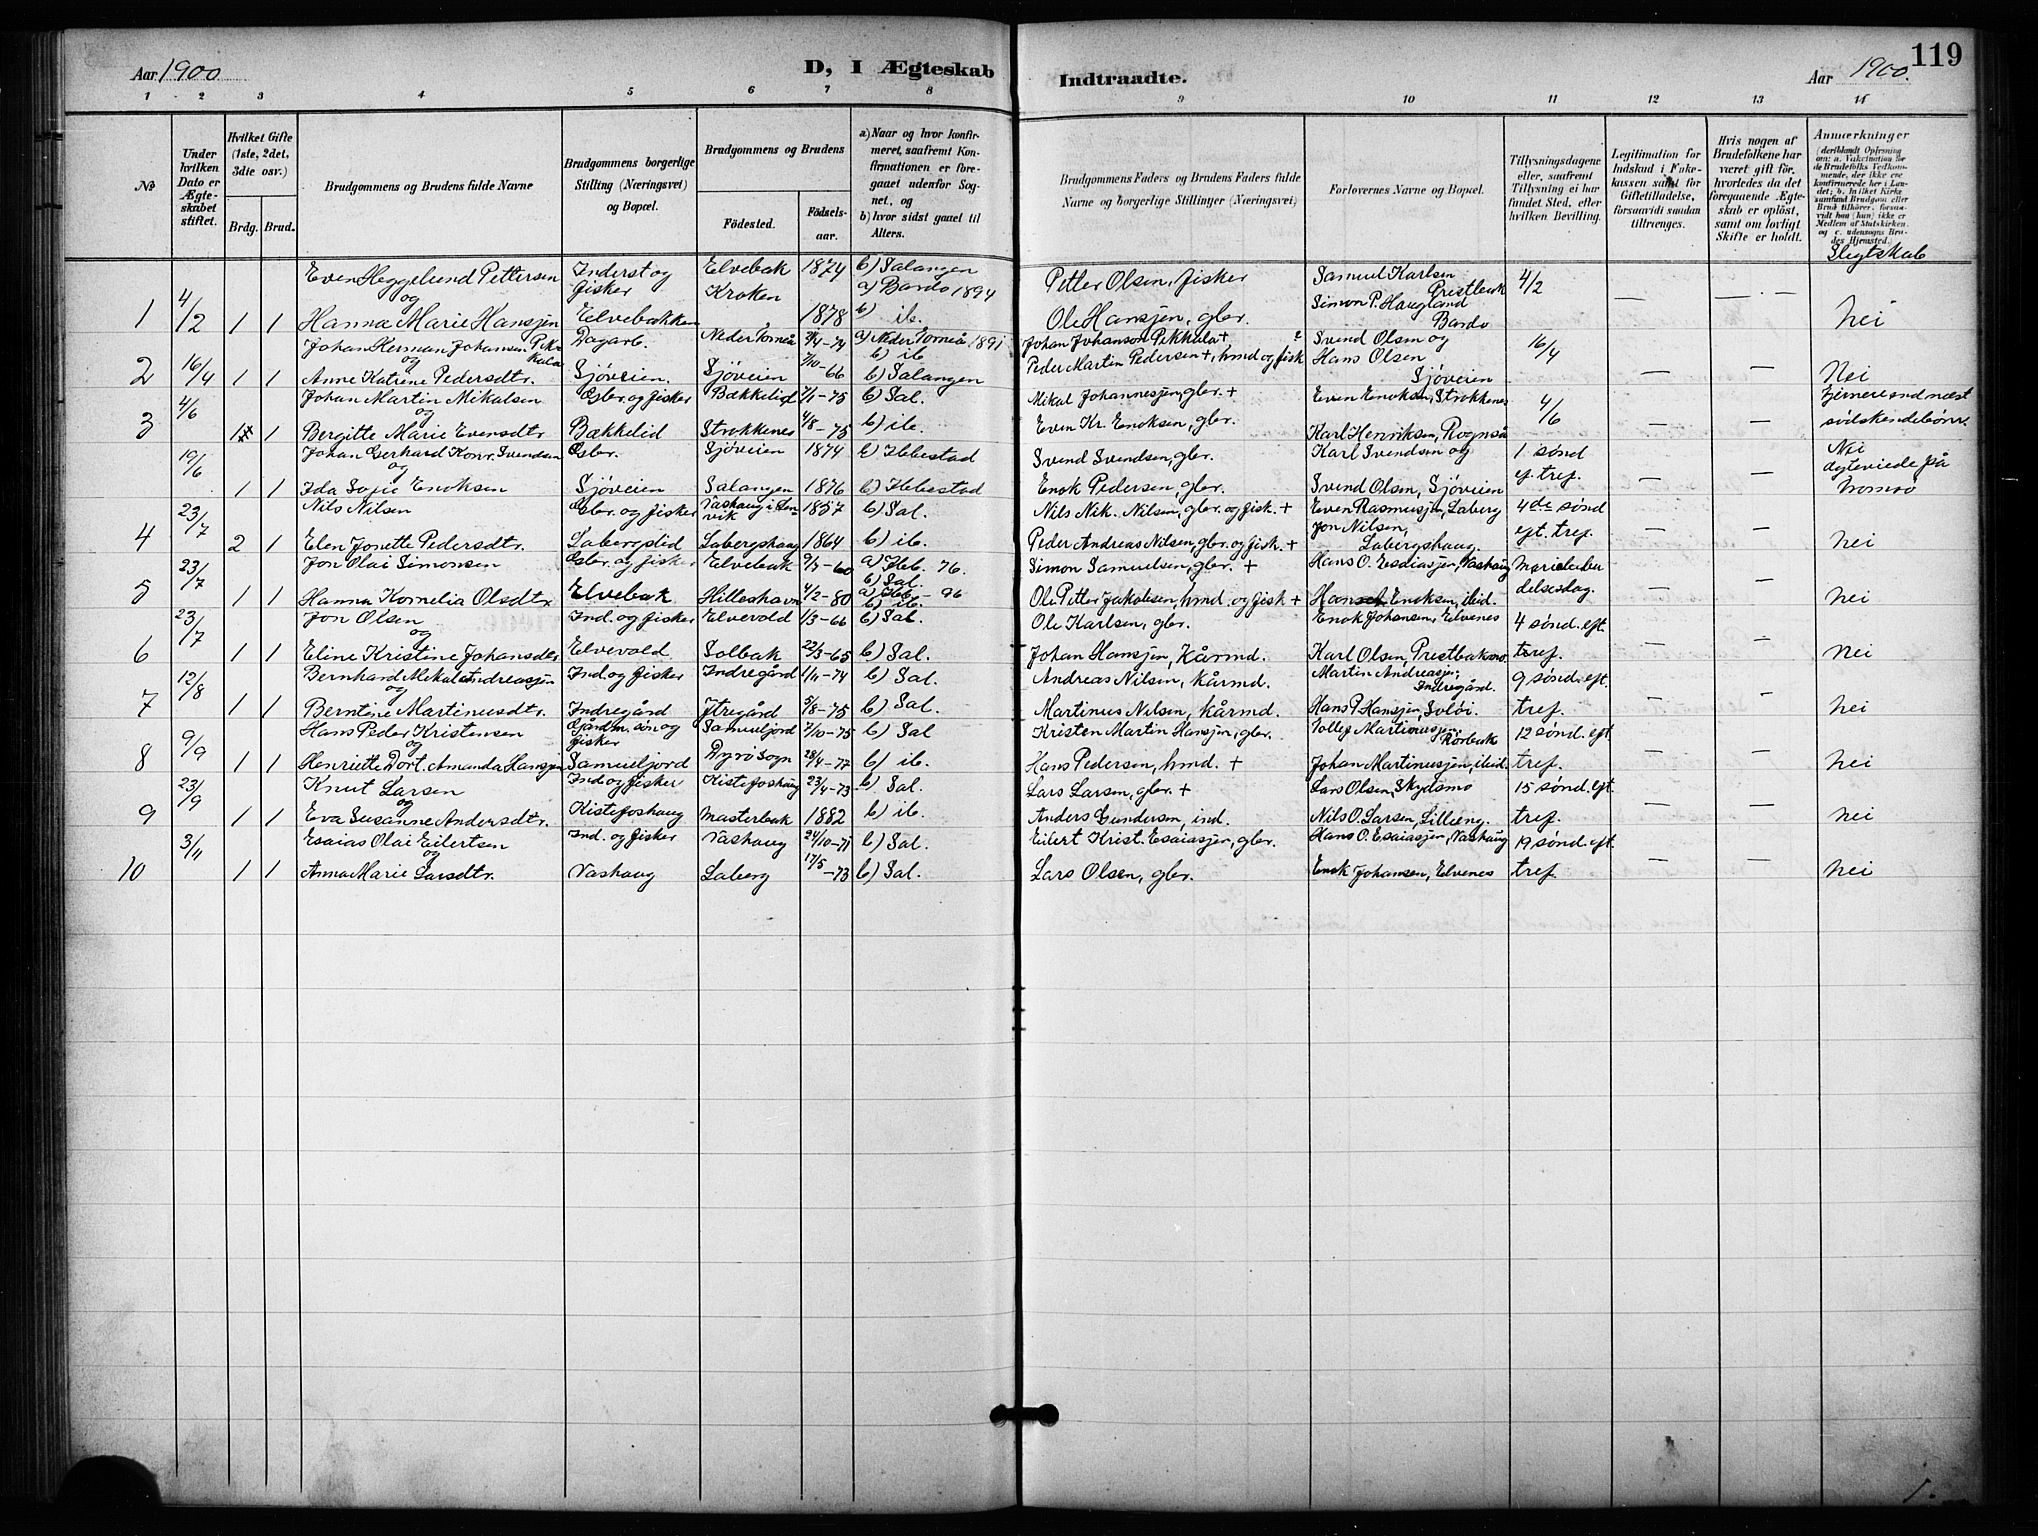 Aar 1900 D, I Ægteskab Indtraadte. Aar 1900. 119
1 2 3 4 5 6 7 8 9 10 11 12 13 14
№
Under hvilken Dato er Ægteskabet stiftet.
Hvilket Gifte (1ste, 2det, 3die osv.)
Brdg. Brud.
Brudgommens og Brudens fulde Navne
Brudgommens borgerlige Stilling (Næringsvei) og Bopæl.
Brudgommens og Brudens
Födested. Födselsaar.
a) Naar og hvor konfirmeret, saafremt Konfirmationen er foregaaet udenfor Sognet, og
b) hvor sidst gaaet til Alters.
Brudgommens Faders og Brudens Faders fulde Navne og borgerlige Stillinger (Næringsvei)
Forlovernes Navne og Bopæl.
Tillysningsdagene eller, saafremt Tillysning ei har fundet Sted, efter hvilken Bevilling.
Legitimation for Indskud i Enkekassen samt for Giftetilladelse, forsaavidt saadan tiltrænges.
Hvis nogen af Brudefolkene har været gift för, hvorledes da det foregaaende Ægteskab er oplöst, samt om lovligt Skifte er holdt.
Anmærkninger (deriblandt Oplysning om: a. Vakcination for de Brudefolks Vedkommende, der ikke ere konfirmerede her i Landet; b. In hvilket Kirkesamfund Brudgom eller Brud tilhörer, forsaavidt han (hun) ikke er Medlem af Statskirken, og c. udensogns Brudes Hjemsted.
Slegtskab
Even Heggelund Pettersen Inderst og Elvebak 1874 b) Salangen Petter Olsen, fisker Samuel Karlsen 4/2
og fisker Kroken a) Bardo 1894 Prestbak
1 4/2 1 1 Hanna Marie Hansjen Elvebakken 1878 b) ib. Ole Hansjen, gbr. Simon P. Haugland Bardo — — nei
Johan Herman Johansen Pekkala Dagarb. Neder Torneå 24/4-74 a) Neder Torneå 1891 Johan Johanson Pekkala + Svend Olsen og 16/4
og b) ib Peder Martin Pedersen +, hmd og fisk Hans Olsen
2 16/4 1 1 Anne Katrine Pedersdtr. Sjøveien. Sjøveien 7/10-66 b) Salangen Sjöveien — — Nei
4/6 Johan Martin Mikalsen Gbr. og fisker Bakkelid 7/1-75 b) Sal. Mikal Johannesjen, gbr. + Even Enoksen, Strokkenes 4/6 fjernere end næst
3 1 1 Bergitte Marie Evensdtr Bakkelid Strokkenes 4/8-75 b) ib. Even Kr. Enoksen, gbr. Karl Henriksen, Rognså — — södskendebörn.
19/6 Johan Gerhard Konr. Svendsen Gbr. Sjöveien 1874 b) Ibbestad Svend Svendsen, gbr. Karl Svendsen og 1 sönd Nei
og ef. tref. — — Ægteviede på
1 1 Ida Sofie Enoksen Sjöveien Salangen 1876 b) Ibbestad Enok Pedersen, gbr. Svend Olsen, Sjöveien Tromsö
23/7 Nils Nilsen Gbr. og fisker Vashaug i Lenvik 1857 b) Sal. Nils Nik. Nilsen, gbr. og fisk. + Even Rasmusjen, Laberg 4de sönd
4 2 1 Elen Jonette Pedersdtr. Labergslid Labergshaug 1864 b) ib. Peder Andreas Nilsen, gbr. og fisk. + Jon Nilsen, Labergshaug. eft. tref. — — nei
23/7 Jon Olai Simonsen Gbr. og fisker Elvebak 9/7-60 a) Ibb. 76. b) Sal. Simon Samuelsen, gbr. + Hans O. Esaiasjen, Vashaug Mariæ bebu
5 1 1 Hanna Kornelia Olsdtr Elvebak Hilleshavn 4/2-80 a) Ibb. - 96 b) ib. Ole Petter Jakobsen, hmd. og fisk + Hans Enoksen, ibid. delsesdag. — — nei
23/7 Jon Olsen Ind. og fisker Elvevold 1/3-66 b) Sal. Ole Karlsen, gbr. Enok Johansen, Elvenes 4 sönd. eft.
6 1 1 Eline Kristine Johansdtr Elvevold Solbak 22/3-65 b) Sal. Johan Hansjen, Kårmd. Karl Olsen, Prestbakmo tref. — — nei
12/8 Bernhard Mikal Andreasjen Ind. og fisker Indregård 1/11-74 b) Sal. Andreas Nilsen, kårmd. Martin Andreasjen, Indregård. 9 sönd. eft.
7 1 1 Berntine Martinusdtr. Indregård Ytregård 5/8-75 b) Sal. Martinus Nilsen, kårmd. Hans P. Hansjen, Svlöi tref. — — nei
9/9 Hans Peder Kristensen Gårdm. sön og fisker Samuijord 7/10-75 b) Sal Kristen Martin Hansjen, gbr. Tollef Martinusjen, Rörbak 12 sönd. eft
8 1 1 Henriette Dort. Amanda Hansjen Samuijord Dyrö Sogn 28/4-77 b) ib. Hans Pedersen, hmd. + Johan Martinusjen, ibid. tref. — — nei
23/9 Knut Larsen Ind og fisker Kistefoshaug 23/4-73 b) Sal. Lars Larsen, gbr. + Lars Olsen, Skydsmo 15 sönd. eft
9 1 1 Eva Susanne Andersdtr. Kistefoshaug Masterbak 1882 b) ib. Anders Gundersen, ind. Nils O. Larsen, Lilleng. tref. — — nei
3/11 Esaias Olai Eilertsen Ind. og fisker Vashaug 24/10-71 b) Sal. Eilert Krist. Esaiasjen, gbr. Hans O. Esaiasjen, Vashaug 19 sönd. eft.
10 1 1 Anna Marie Larsdtr. Vashaug Laberg 17/5-73 b) Sal. Lars Olsen, gbr. Enok Johansen, Elvenes tref. — — nei